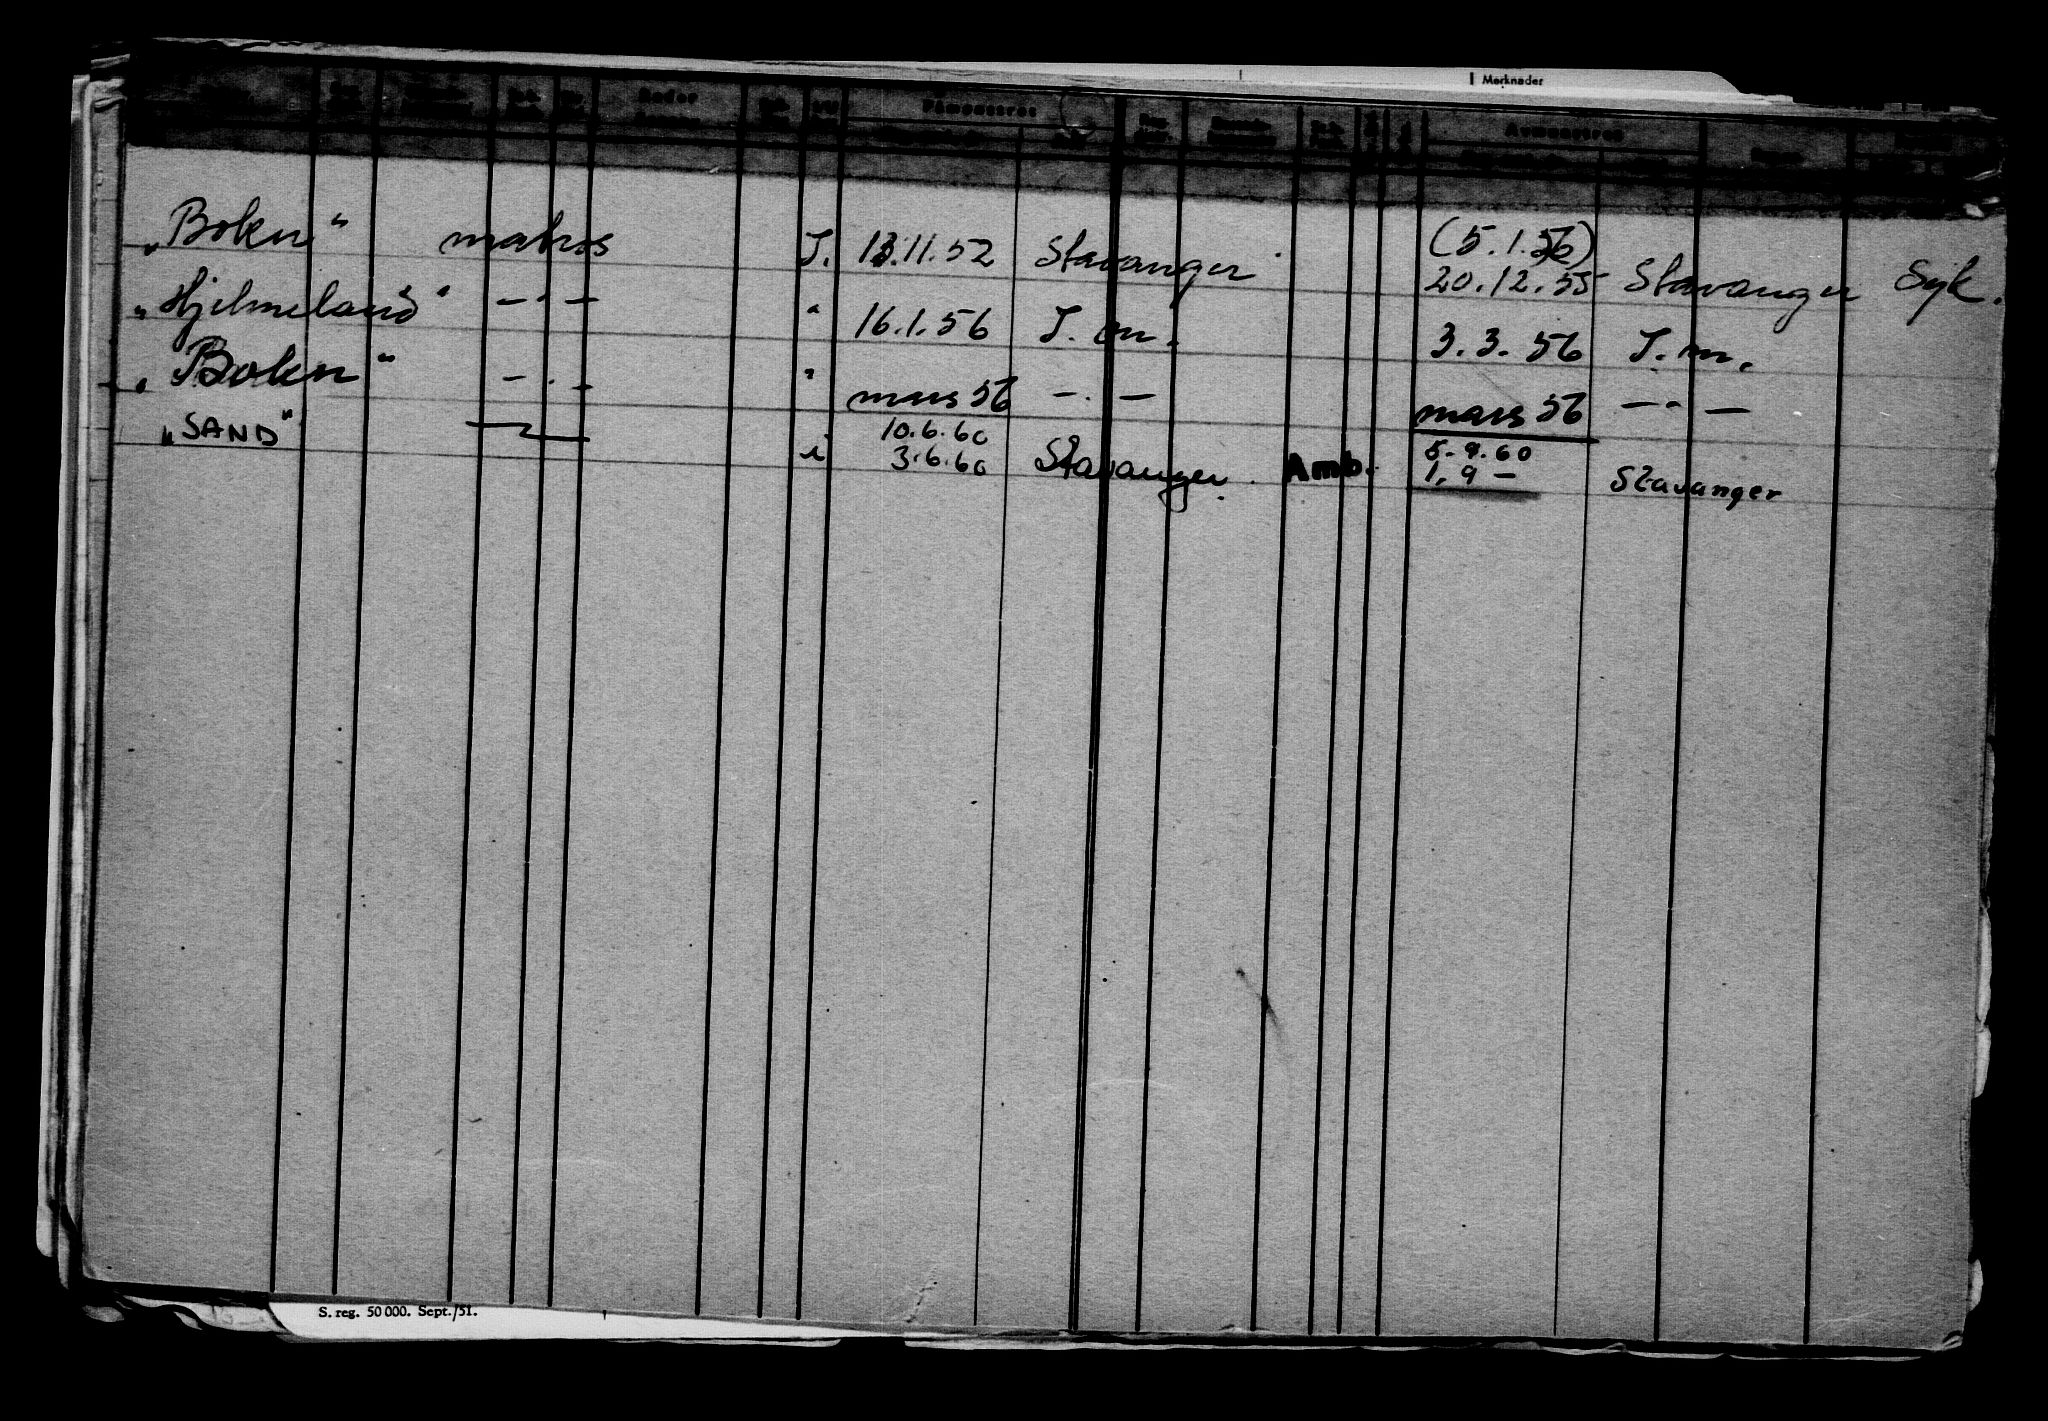 Merknader
Reder
Påmønstret
Avmønstret
„Bokn“ matros I. 13.11.52 Stavanger (5.1.56)
20.12.55 Stavanger Syk.
„Hjelmeland“ — " — " 16.1.56 I. m. 3.3.56 I. m.
„Bokn“ — . — " mars 56 — . — mars 56 — " —
„SAND“ i 10.6.60
3.6.60 Stavanger. Amb. 5.9.60
1.9 — Stavanger
S. reg. 50 000. Sept./51.